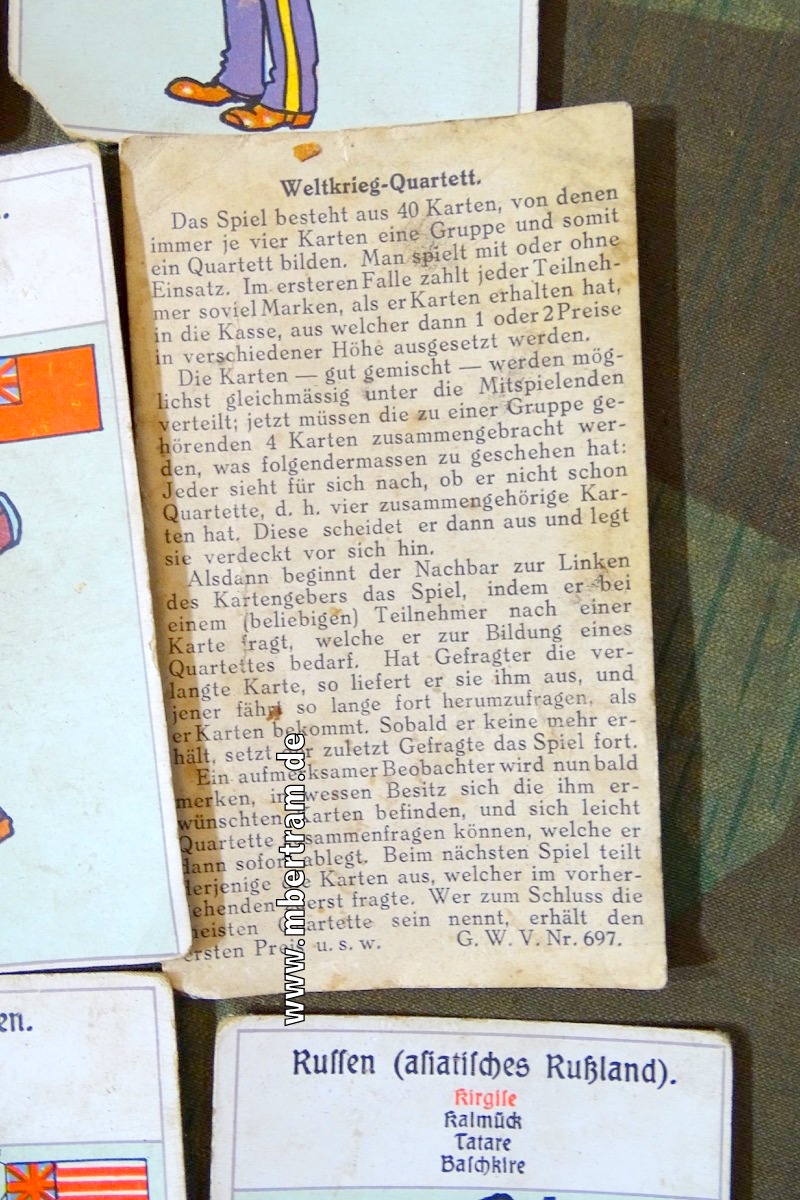 Weltkrieg-Quartett.
Das Spiel besteht aus 40 Karten, von denen
immer je vier Karten eine Gruppe und somit
ein Quartett bilden. Man spielt mit oder ohne
Einsatz. Im ersteren Falle zahlt jeder Teilneh-
mer soviel Marken, als er Karten erhalten hat,
in die Kasse, aus welcher dann 1 oder 2 Preise
in verschiedener Höhe ausgesetzt werden.
Die Karten — gut gemischt — werden mög-
lichst gleichmässig unter die Mitspielenden
verteilt; jetzt müssen die zu einer Gruppe ge-
hörenden 4 Karten zusammengebracht wer-
den, was folgendermassen zu geschehen hat:
Jeder sieht für sich nach, ob er nicht schon
Quartette, d. h. vier zusammengehörige Kar-
ten hat. Diese scheidet er dann aus und legt
sie verdeckt vor sich hin.
Alsdann beginnt der Nachbar zur Linken
des Kartengebers das Spiel, indem er bei
einem (beliebigen) Teilnehmer nach einer
Karte fragt, welche er zur Bildung eines
Quartettes bedarf. Hat Gefragter die ver-
langte Karte, so liefert er sie ihm aus, und
jener fährt so lange fort herumzufragen, als
er Karten bekommt. Sobald er keine mehr er-
hält, setzt der zuletzt Gefragte das Spiel fort.
Ein aufmerksamer Beobachter wird nun bald
merken, in wessen Besitz sich die ihm er-
wünschten Karten befinden, und sich leicht
Quartette zusammenfragen können, welche er
dann sofort ablegt. Beim nächsten Spiel teilt
derjenige die Karten aus, welcher im vorher-
gehenden zuerst fragte. Wer zum Schluss die
meisten Quartette sein nennt, erhält den
ersten Preis u. s. w. G. W. V. Nr. 697.
www.mbertram.de
en.
Russen (asiatisches Rußland).
Kirgise
Kalmück
Tatare
Baschkire